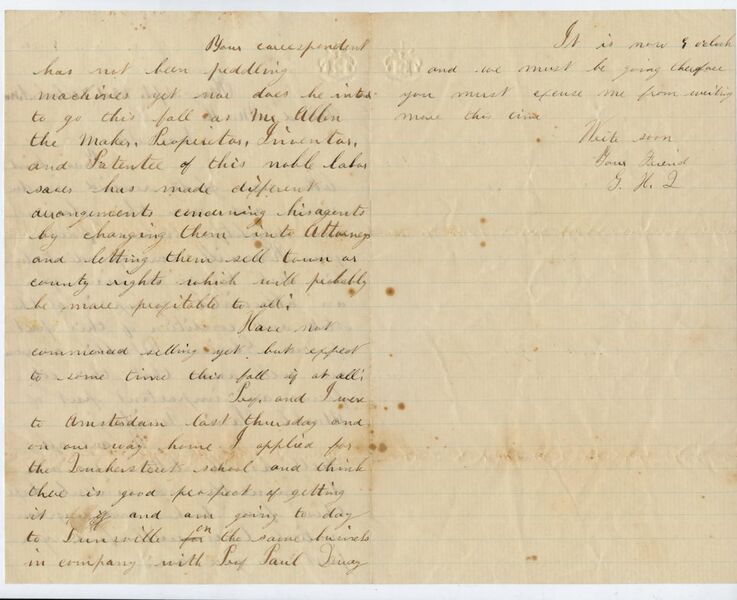 Your correspondent
has not been peddling
machines yet nor does he inten
to go this fall as Mr Allen
the Maker, Proprietor, Inventor,
and Patentee of this noble labor
saver has made different
arrangements concerning his agents
by changing them into Attorneys
and letting them sell town or
county rights which will probably
be more profitable to all.
Have not
commenced selling yet but expect
to some time this fall if at all.
and I were
to Amsterdam last Thursday and
on our way home I applied for
the school and think
there is good prospect of getting
it and am going to day
to Dunsville for on the same buisness
in company with Paul
It is now 9 o'clock
and we must be going therefore
you must excuse me from writing
more this time
Write soon
Your Friend